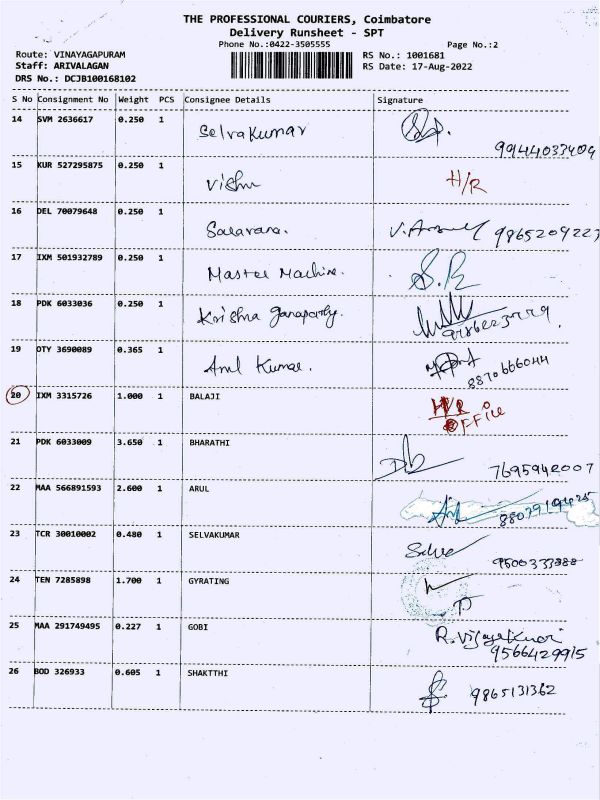 THE PROFESSIONAL COURIERS, Coimbatore
Delivery Runsheet - SPT
Phone No.:0422-3505555 Page No.:2
Route: VINAYAGAPURAM RS No.: 1001681
Staff: ARIVALAGAN RS Date: 17-Aug-2022
DRS No.: DCJB100168102
S No Consignment No Weight PCS Consignee Details Signature
14 SVM 2636617 0.250 1 Selvakumar 9944033404
15 KUR 527295875 0.250 1 Vishu H/R
16 DEL 70079648 0.250 1 Saravana. 9865209223
17 IXM 501932789 0.250 1 Master Machine. S.R
18 PDK 6033036 0.250 1 Krishna Ganapathy.
19 OTY 3690089 0.365 1 Anil Kumar. 8870666044
20 IXM 3315726 1.000 1 BALAJI H/R
Office
21 PDK 6033009 3.650 1 BHARATHI 7695942007
22 MAA 566891593 2.600 1 ARUL
23 TCR 30010002 0.480 1 SELVAKUMAR Selva 9500333888
24 TEN 7285898 1.700 1 GYRATING
25 MAA 291749495 0.227 1 GOBI R.Vijayakumar
9566429915
26 BOD 326933 0.605 1 SHAKTTHI 9865131362